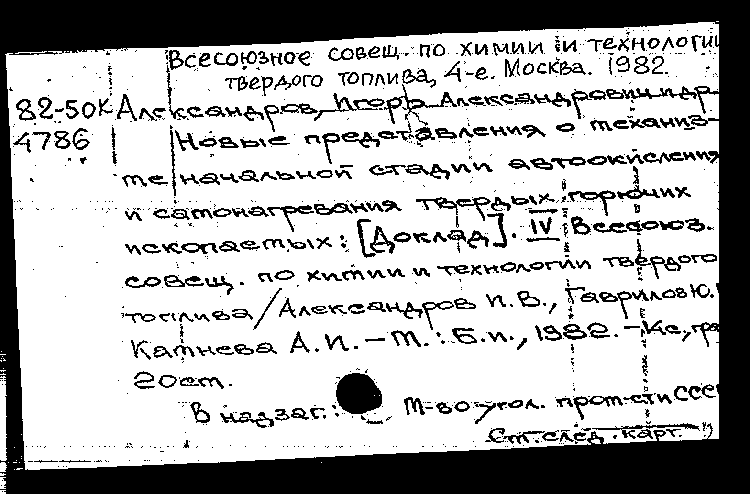 Всесоюзное совещ. по химии и технологии
твердого топлива, 4-е. Москва. 1982.
82-50К Александров, Игорь Александрович и др
4786 Новые представления о механиз-
ме начальной стадии автоокисления
и самонагревания твердых горючих
ископаемых: [Доклад]. IV Всесоюз.
совещ. по химии и технологии твердого
топлива/Александров И.В., Гаврилов Ю.
Камнева А.И. – М.: Б.и., 1982. – 14с, гра
20см.
В надзаг.: М-во угол. пром-сти СССР
См. след. карт.